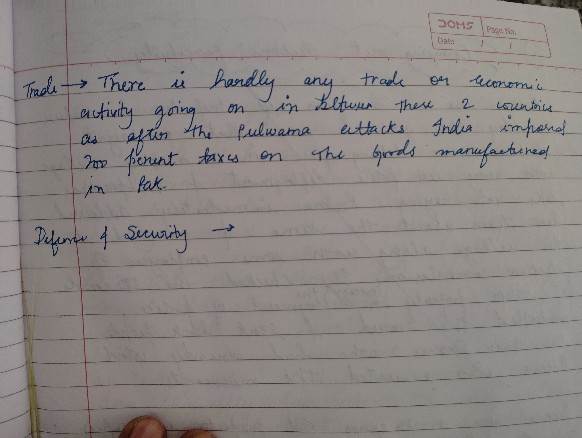 DOMS
Page No.
Date / /
Trade → There is hardly any trade or economic
activity going on in between these 2 countries
as after the Pulwama attacks India imposed
200 percent taxes on the goods manufactured
in Pak.
Defence & Security →